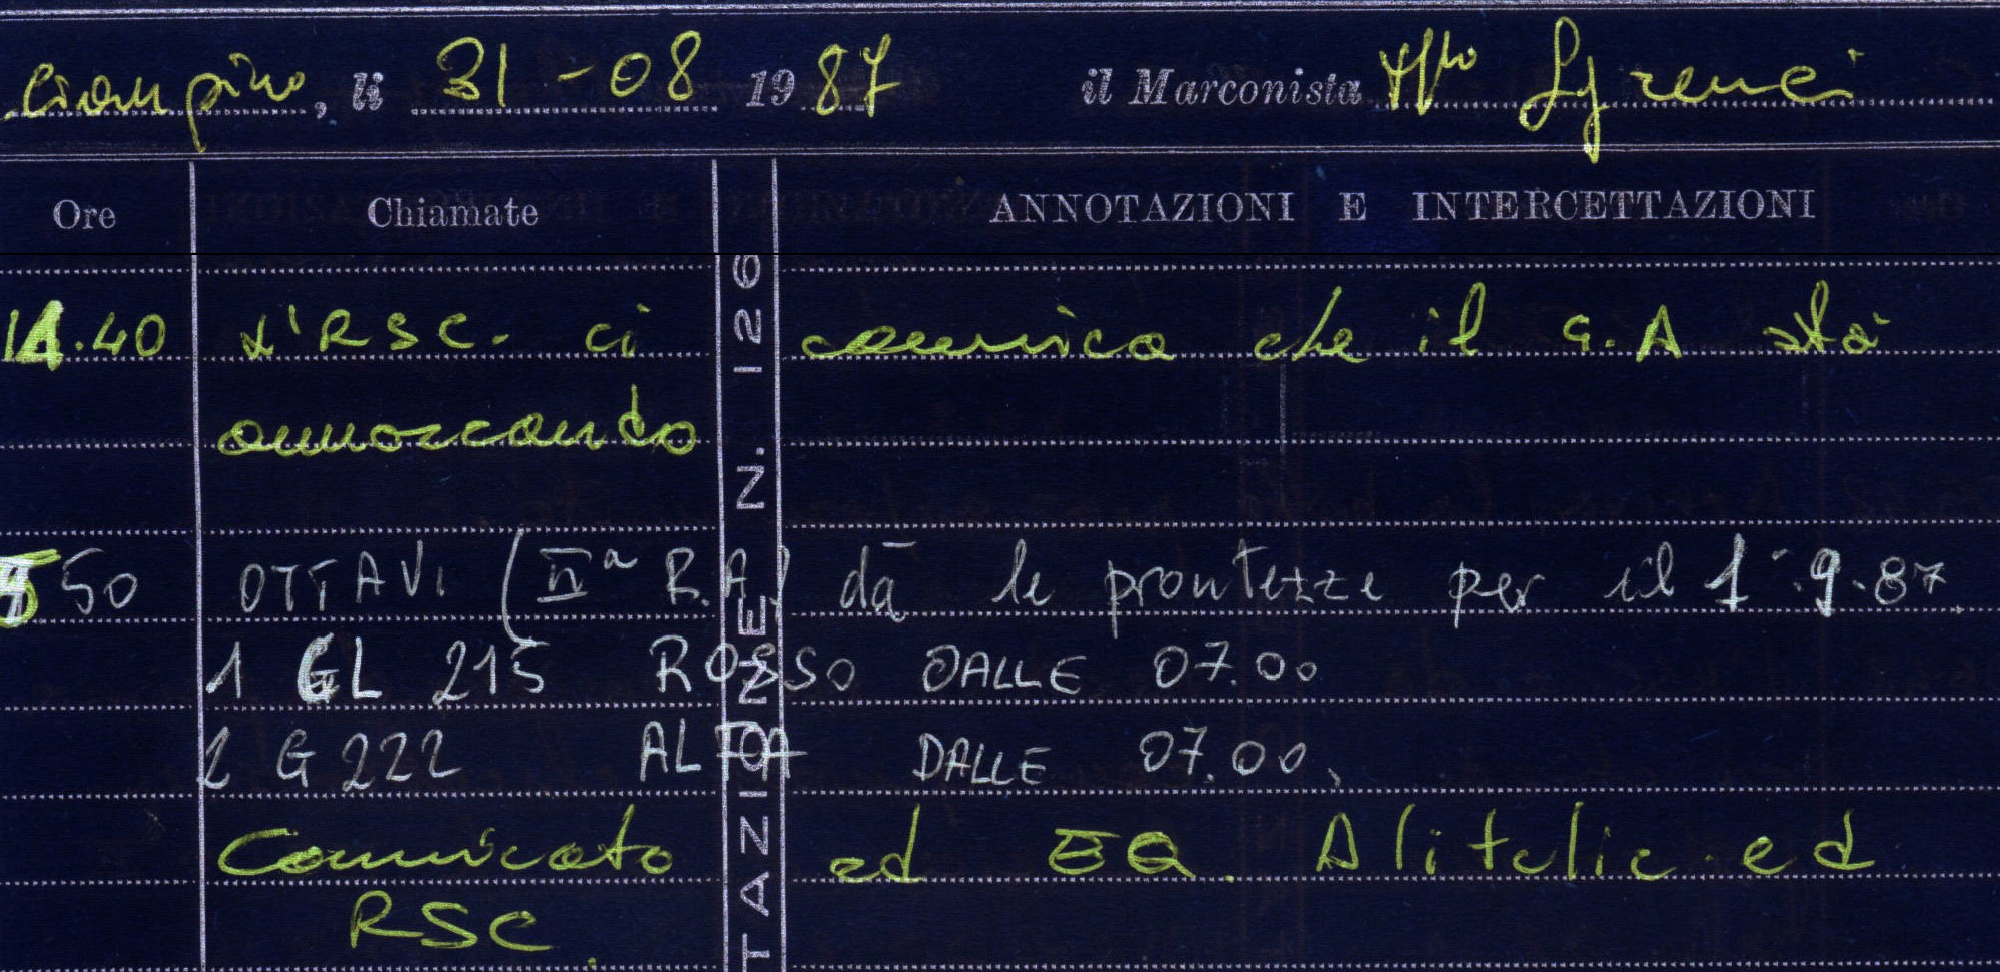 Ciampino, li 31-08 1987 il Marconista
Ore Chiamate ANNOTAZIONI E INTERCETTAZIONI
14.40 L'RSC. ci comunica che il G.A stà
ammarcando
50 OTTAVI (IIª R.A) dà le prontezze per il 1°.9.87
1 GL 215 ROSSO DALLE 07.00
2 G222 ALFA DALLE 07.00.
Comunicato ad EQ. Alitalia ed
RSC
TAZIONE N. 126